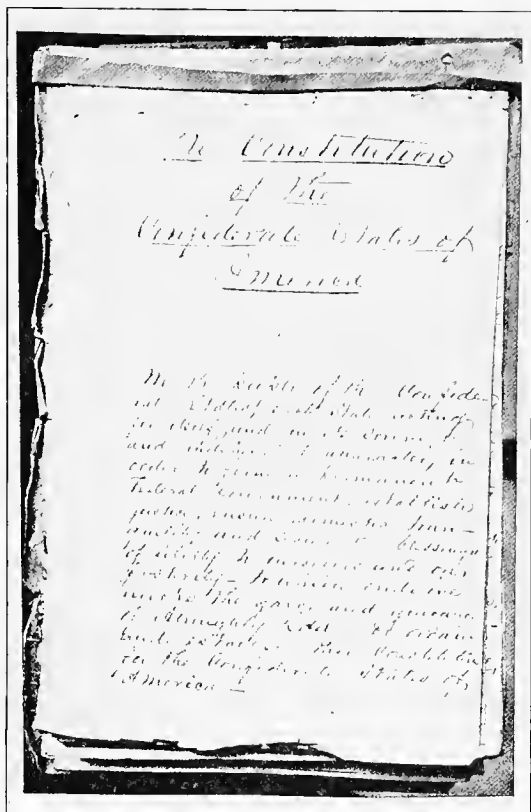 The Constitution
of the
Confederate States of
America
We the people of the Confeder
ate States, each State acting
for itself, and in its sovereign
and independent character, in
order to form a permanent
Federal Government, establish
justice, insure domestic tran-
quility and secure the blessings
of liberty to ourselves and our
posterity – to which ends we
invoke the favor and guidance
of Almighty God do ordain
and establish this Constitution
for the Confederate States of
America –